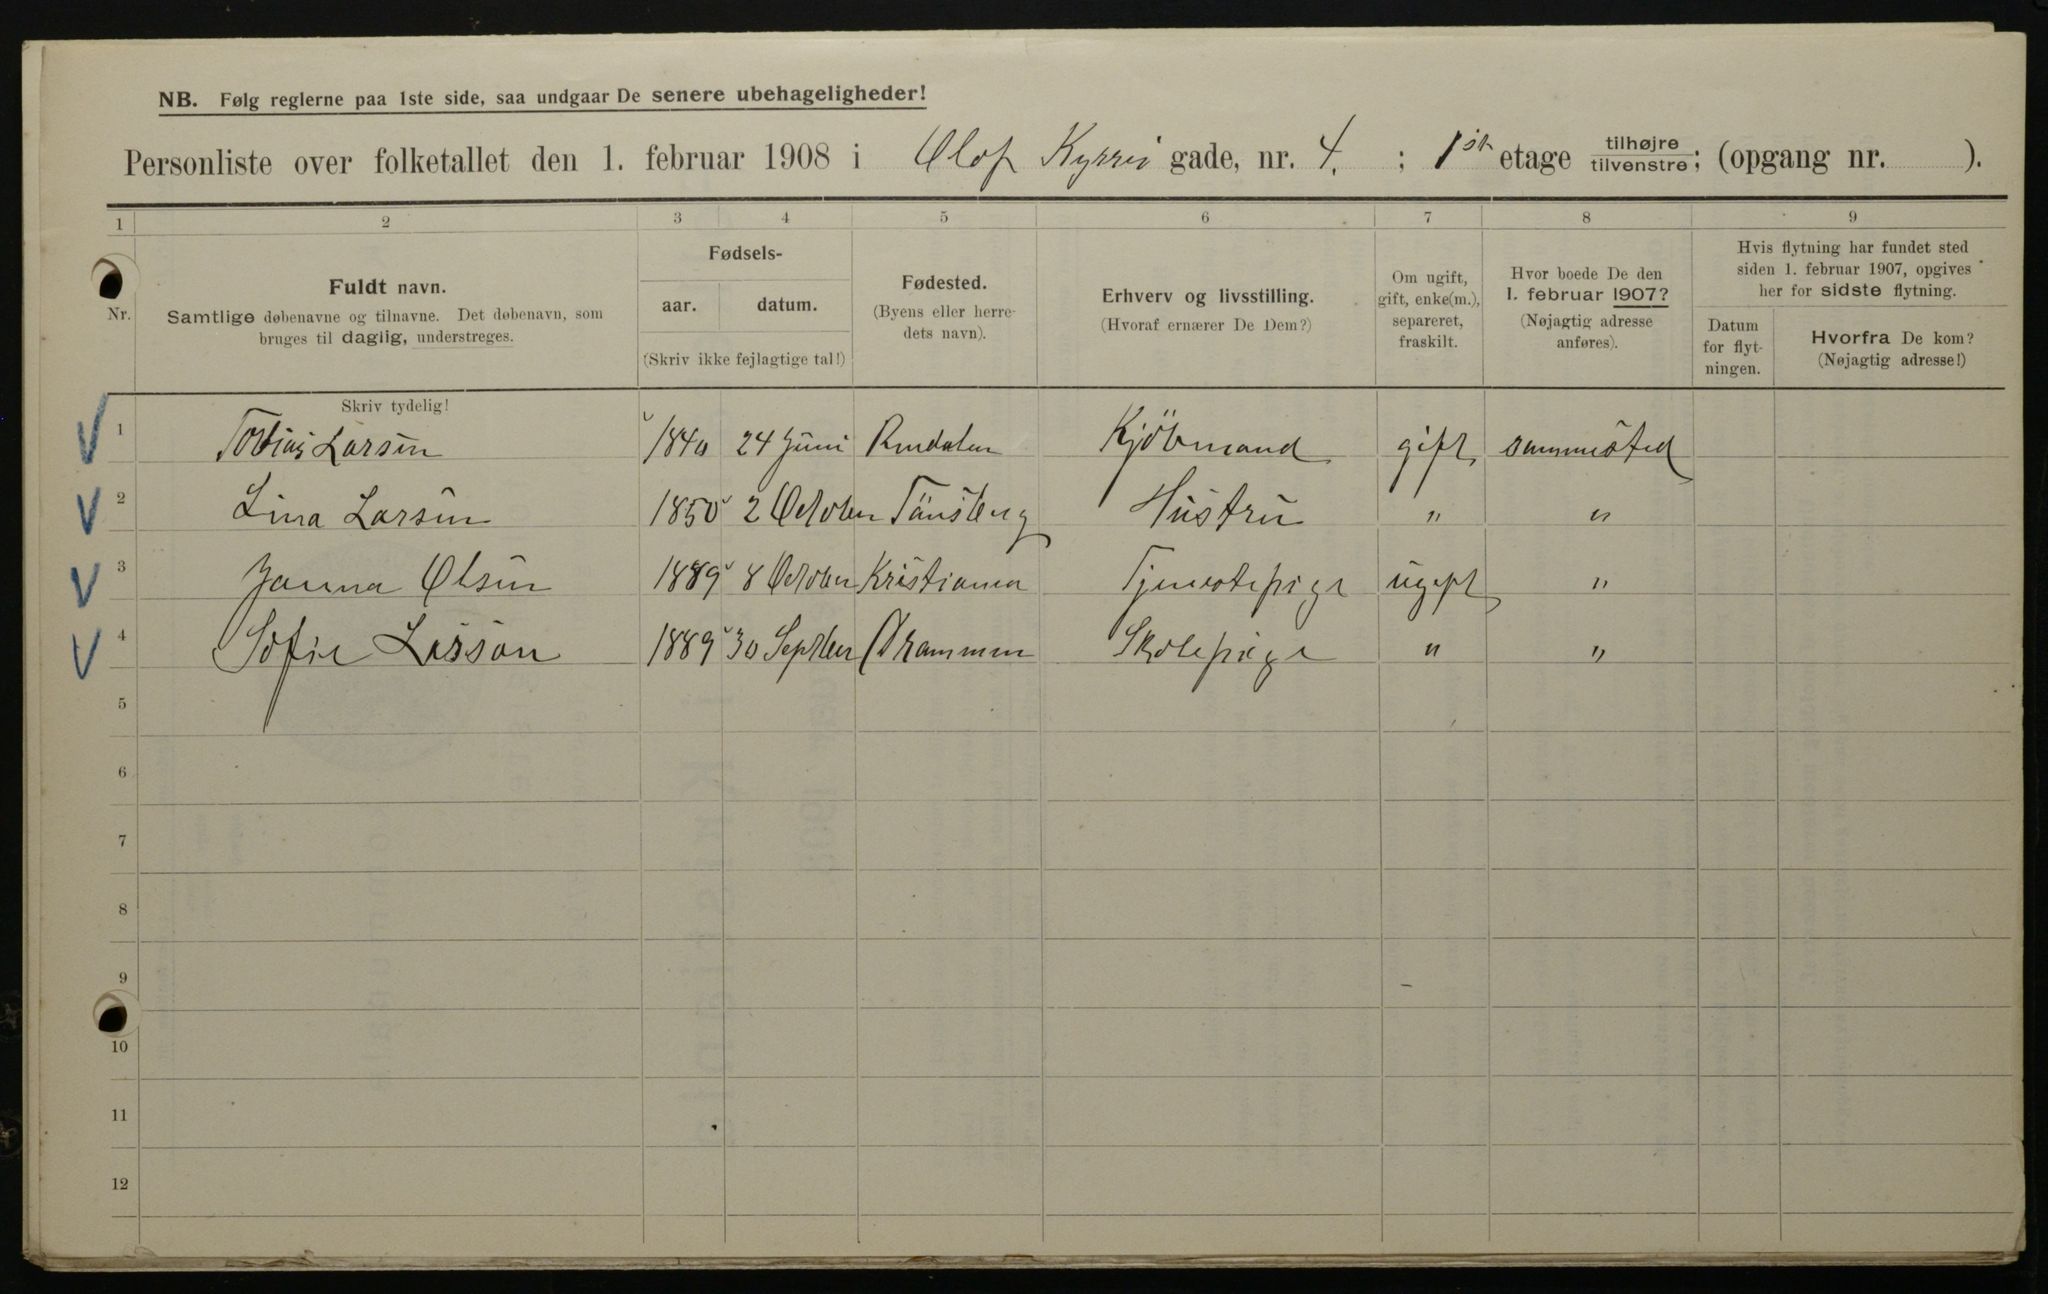 NB. Følg reglerne paa 1ste side, saa undgaar De senere ubehageligheder!
Personliste over folketallet den 1. februar 1908 i Olaf Kyrres gade, nr. 4. ; 1ste etage tilhøjre tilvenstre; (opgang nr. ).
1 2 3 4 5 6 7 8 9
Nr.
Fuldt navn.
Samtlige døbenavne og tilnavne. Det døbenavn, som
bruges til daglig, understreges.
Fødsels-
aar. datum.
(Skriv ikke fejlagtige tal!)
Fødested.
(Byens eller herre-
dets navn).
Erhverv og livsstilling.
(Hvoraf ernærer De Dem?)
Om ugift,
gift, enke(m.),
separeret,
fraskilt.
Hvor boede De den
1. februar 1907?
(Nøjagtig adresse
anføres).
Hvis flytning har fundet sted
siden 1. februar 1907, opgives
her for sidste flytning.
Datum
for flyt-
ningen.
Hvorfra De kom?
(Nøjagtig adresse!)
Skriv tydelig!
1 Tobias Larsen 1840 24 Juni Kjöbmand gift sammested
2 Lina Larsen 1850 2 October Tönsberg Hustru " "
3 Janna Olsen 1889 8 October Kristiania Tjenestepige ugift "
4 Sofie Larsson 1889 30 Septber Drammen Skolepige " "
5
6
7
8
9
10
11
12